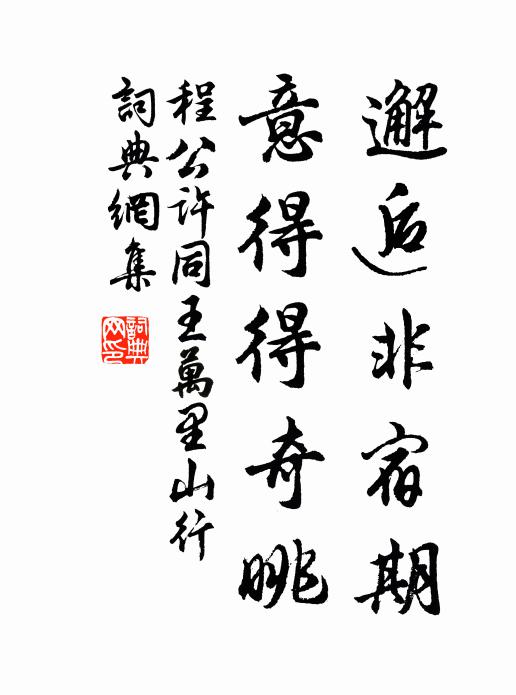 邂逅非宿期
意得得奇眺
程公許同王萬里山行
詞典網集
詞典網印